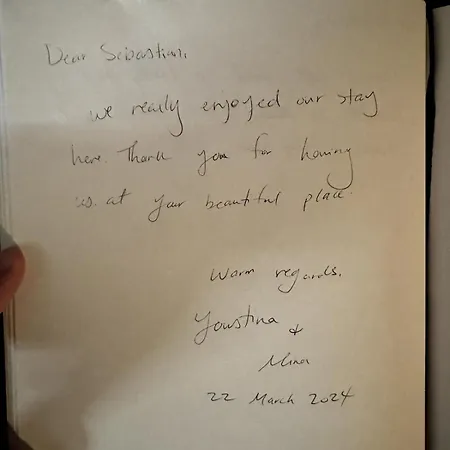 Dear Sebastian,
we really enjoyed our stay
here. Thank you for having
us. at your beautiful place.
Warm regards,
Youstina
&
Mina
22 March 2024